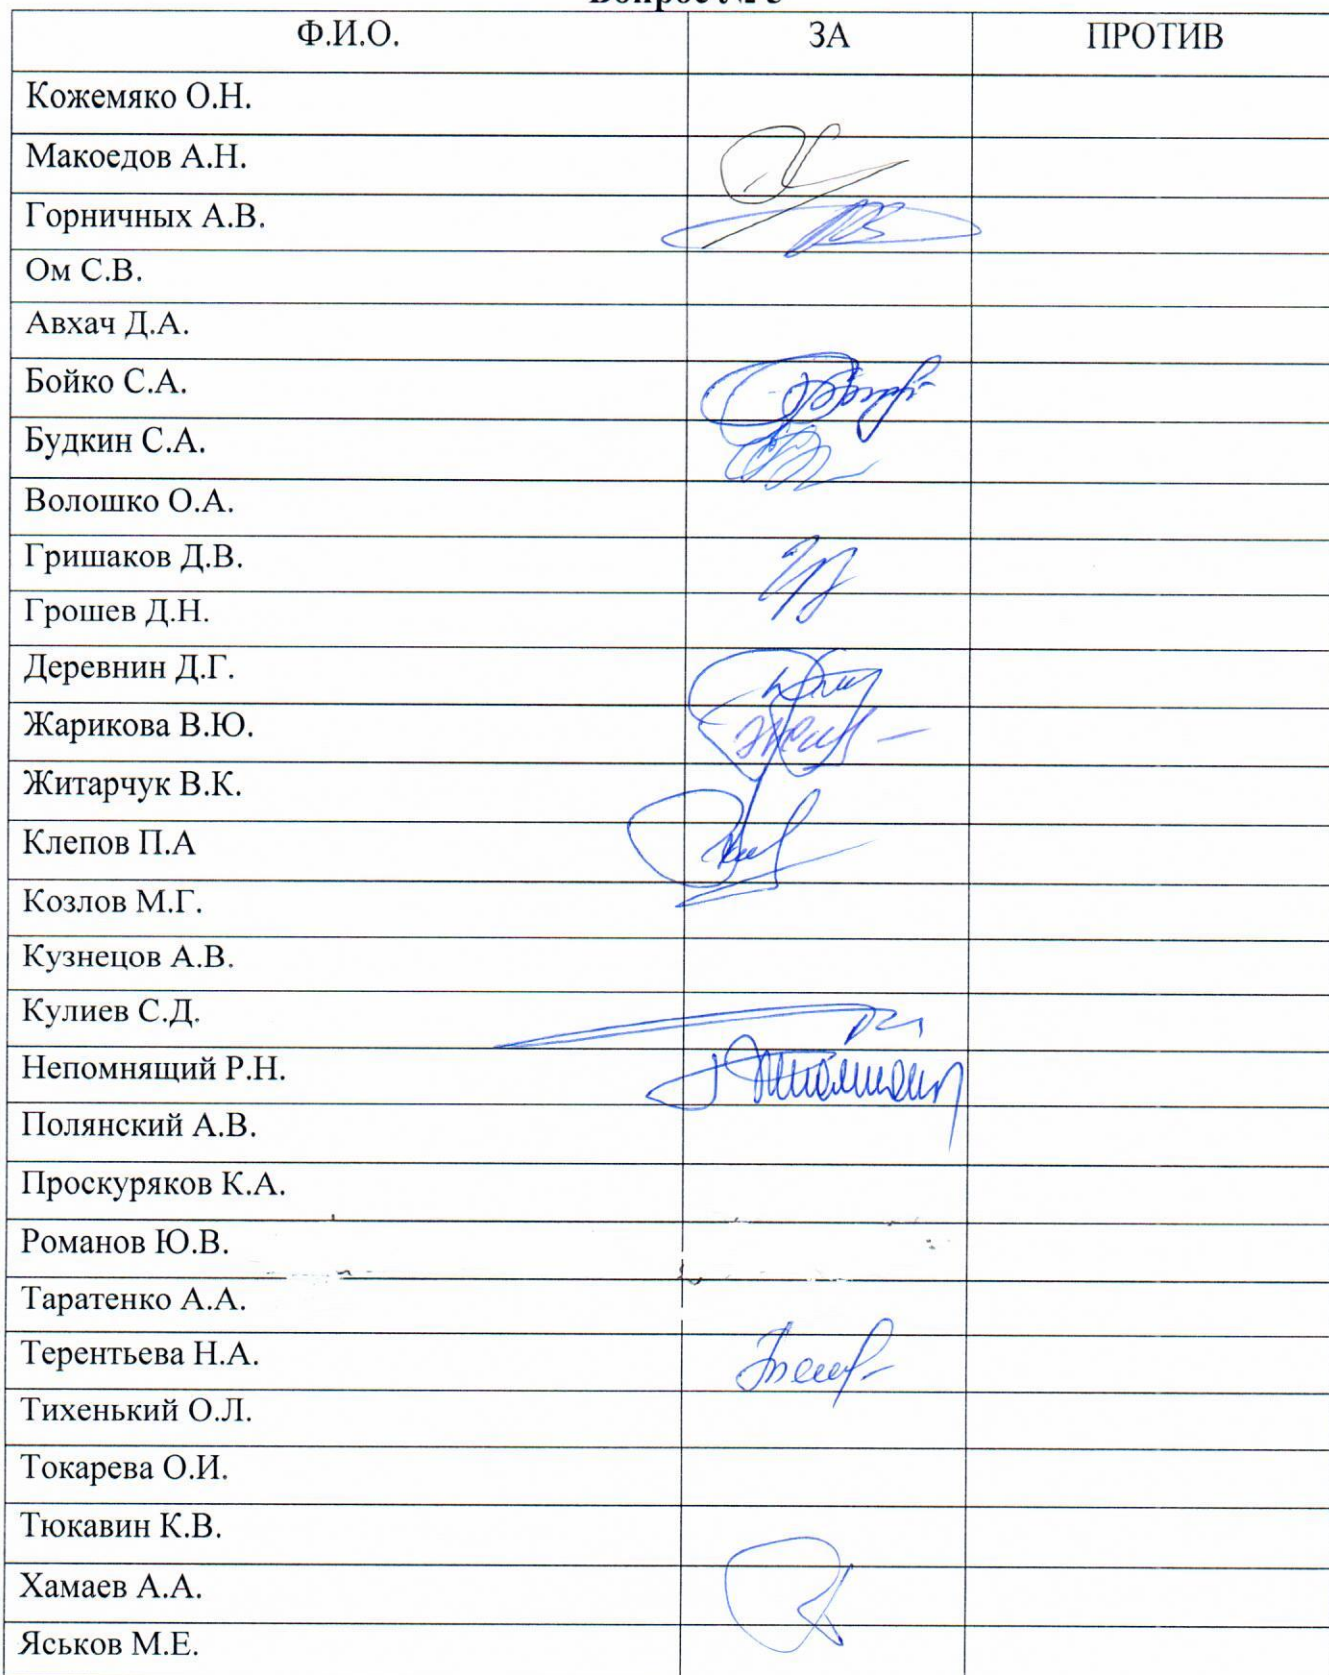 Ф.И.О. ЗА ПРОТИВ
Кожемяко О.Н.
Макоедов А.Н.
Горничных А.В.
Ом С.В.
Авхач Д.А.
Бойко С.А.
Будкин С.А.
Волошко О.А.
Гришаков Д.В.
Грошев Д.Н.
Деревнин Д.Г.
Жарикова В.Ю.
Житарчук В.К.
Клепов П.А
Козлов М.Г.
Кузнецов А.В.
Кулиев С.Д.
Непомнящий Р.Н.
Полянский А.В.
Проскуряков К.А.
Романов Ю.В.
Таратенко А.А.
Терентьева Н.А.
Тихенький О.Л.
Токарева О.И.
Тюкавин К.В.
Хамаев А.А.
Яськов М.Е.